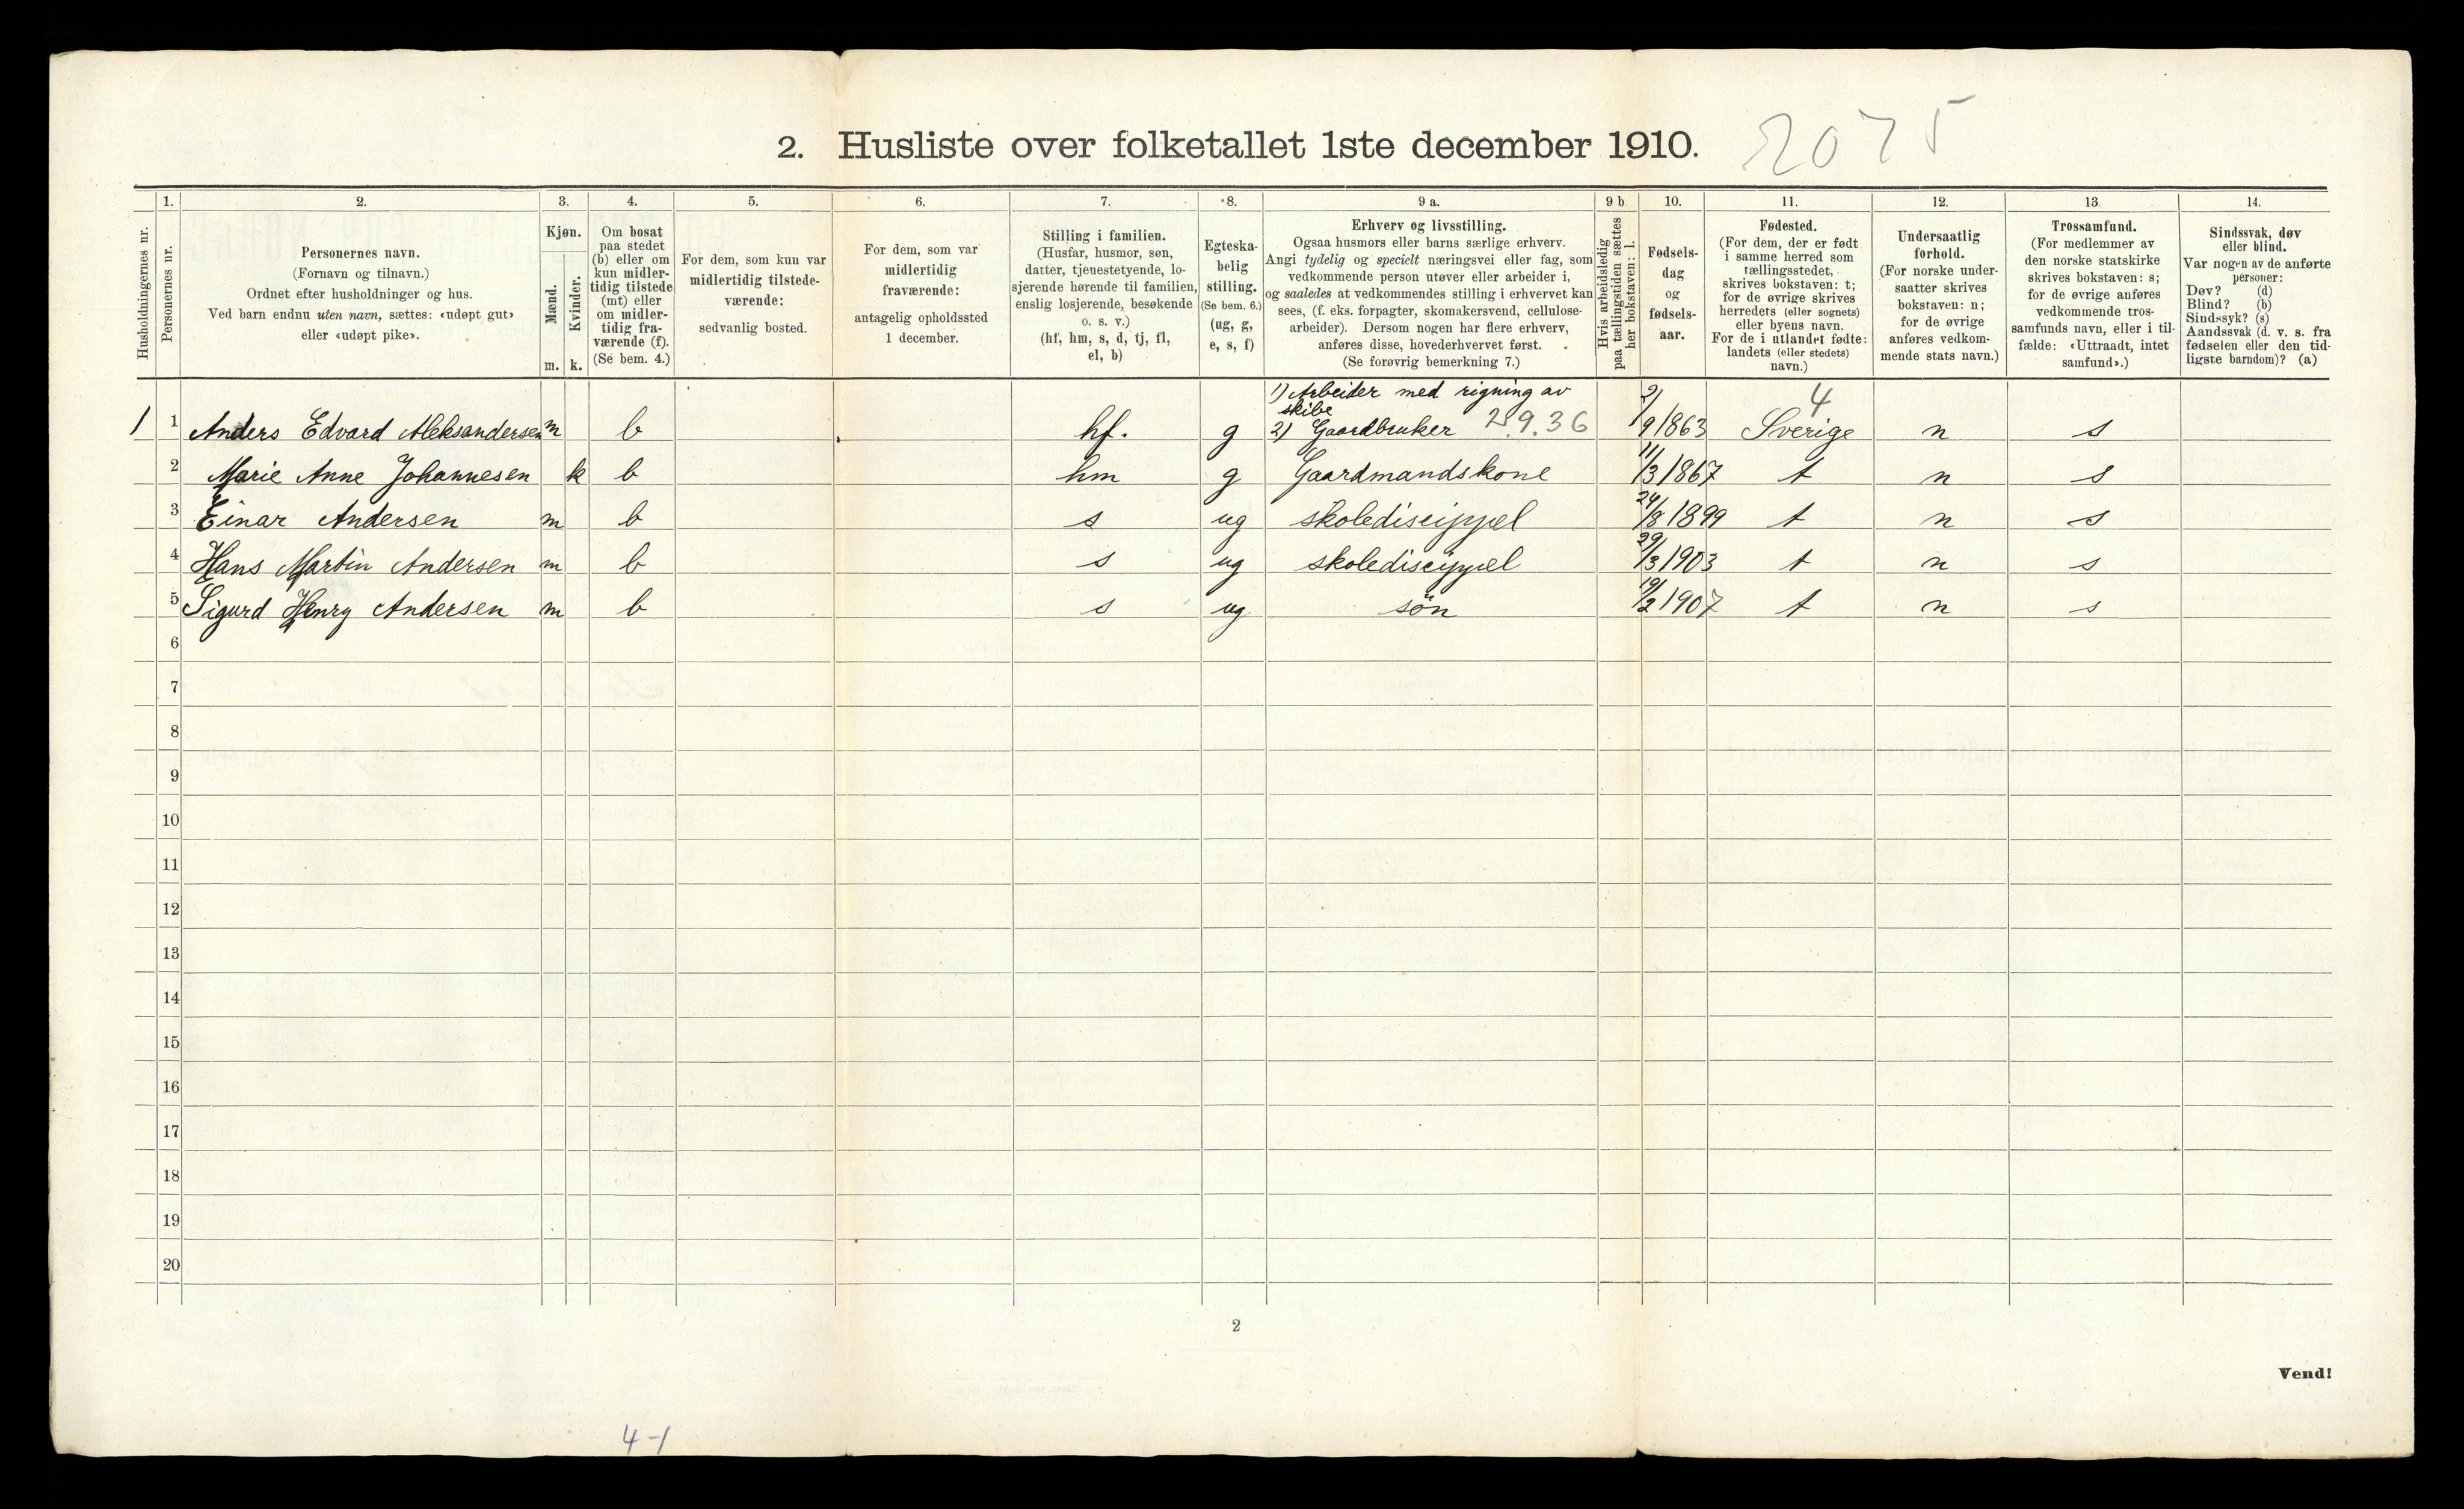 2. Husliste over folketallet 1ste december 1910. 2075
Husholdningernes nr.
1.
Personernes nr.
2.
Personernes navn.
(Fornavn og tilnavn.)
Ordnet efter husholdninger og hus.
Ved barn endnu uten navn, sættes: «udøpt gut»
eller «udøpt pike».
3.
Kjøn.
Mænd.
Kvinder.
m. k.
4.
Om bosat
paa stedet
(b) eller om
kun midler-
tidig tilstede
(mt) eller
om midler-
tidig fra-
værende (f).
(Se bem. 4.)
5.
For dem, som kun var
midlertidig tilstede-
værende:
sedvanlig bosted.
6.
For dem, som var
midlertidig
fraværende:
antagelig opholdssted
1 december.
7.
Stilling i familien.
(Husfar, husmor, søn,
datter, tjenestetyende, lo-
sjerende hørende til familien,
enslig losjerende, besøkende
o. s. v.)
(hf, hm, s, d, tj, fl,
el, b)
8.
Egteska-
belig
stilling.
(Se bem. 6.)
(ug, g,
e, s, f)
9 a.
Erhverv og livsstilling.
Ogsaa husmors eller barns særlige erhverv.
Angi tydelig og specielt næringsvei eller fag, som
vedkommende person utøver eller arbeider i,
og saaledes at vedkommendes stilling i erhvervet kan
sees, (f. eks. forpagter, skomakersvend, cellulose-
arbeider). Dersom nogen har flere erhverv,
anføres disse, hovederhvervet først.
(Se forøvrig bemerkning 7.)
9 b
Hvis arbeidsledig
paa tællingstiden sættes
her bokstaven: l.
10.
Fødsels-
dag
og
fødsels-
aar.
11.
Fødested.
(For dem, der er født
i samme herred som
tællingsstedet,
skrives bokstaven: t;
for de øvrige skrives
herredets (eller sognets)
eller byens navn.
For de i utlandet fødte:
landets (eller stedets)
navn.)
12.
Undersaatlig
forhold.
(For norske under-
saatter skrives
bokstaven: n;
for de øvrige
anføres vedkom-
mende stats navn.)
13.
Trossamfund.
(For medlemmer av
den norske statskirke
skrives bokstaven: s;
for de øvrige anføres
vedkommende tros-
samfunds navn, eller i til-
fælde: «Uttraadt, intet
samfund».)
14.
Sindssvak, døv
eller blind.
Var nogen av de anførte
personer:
Døv? (d)
Blind? (b)
Sindssyk? (s)
Aandssvak (d. v. s. fra
fødselen eller den tid-
ligste barndom)? (a)
1) Arbeider med rigning av
skibe
1 1 Anders Edvard Aleksandersen m b hf. g 2) Gaardbruker 29.36 2/9 1863 Sverige 4 n s
2 Marie Anne Johannesen k b hm g Gaardmandskone 11/3 1867 t n s
3 Einar Andersen m b s ug skolediscippel 24/8 1899 t n s
4 Hans Martin Andersen m b s ug skolediscippel 29/3 1903 t n s
5 Sigurd Henry Andersen m b s ug søn 19/2 1907 t n s
6
7
8
9
10
11
12
13
14
15
16
17
18
19
20
2
Vend!
4-1